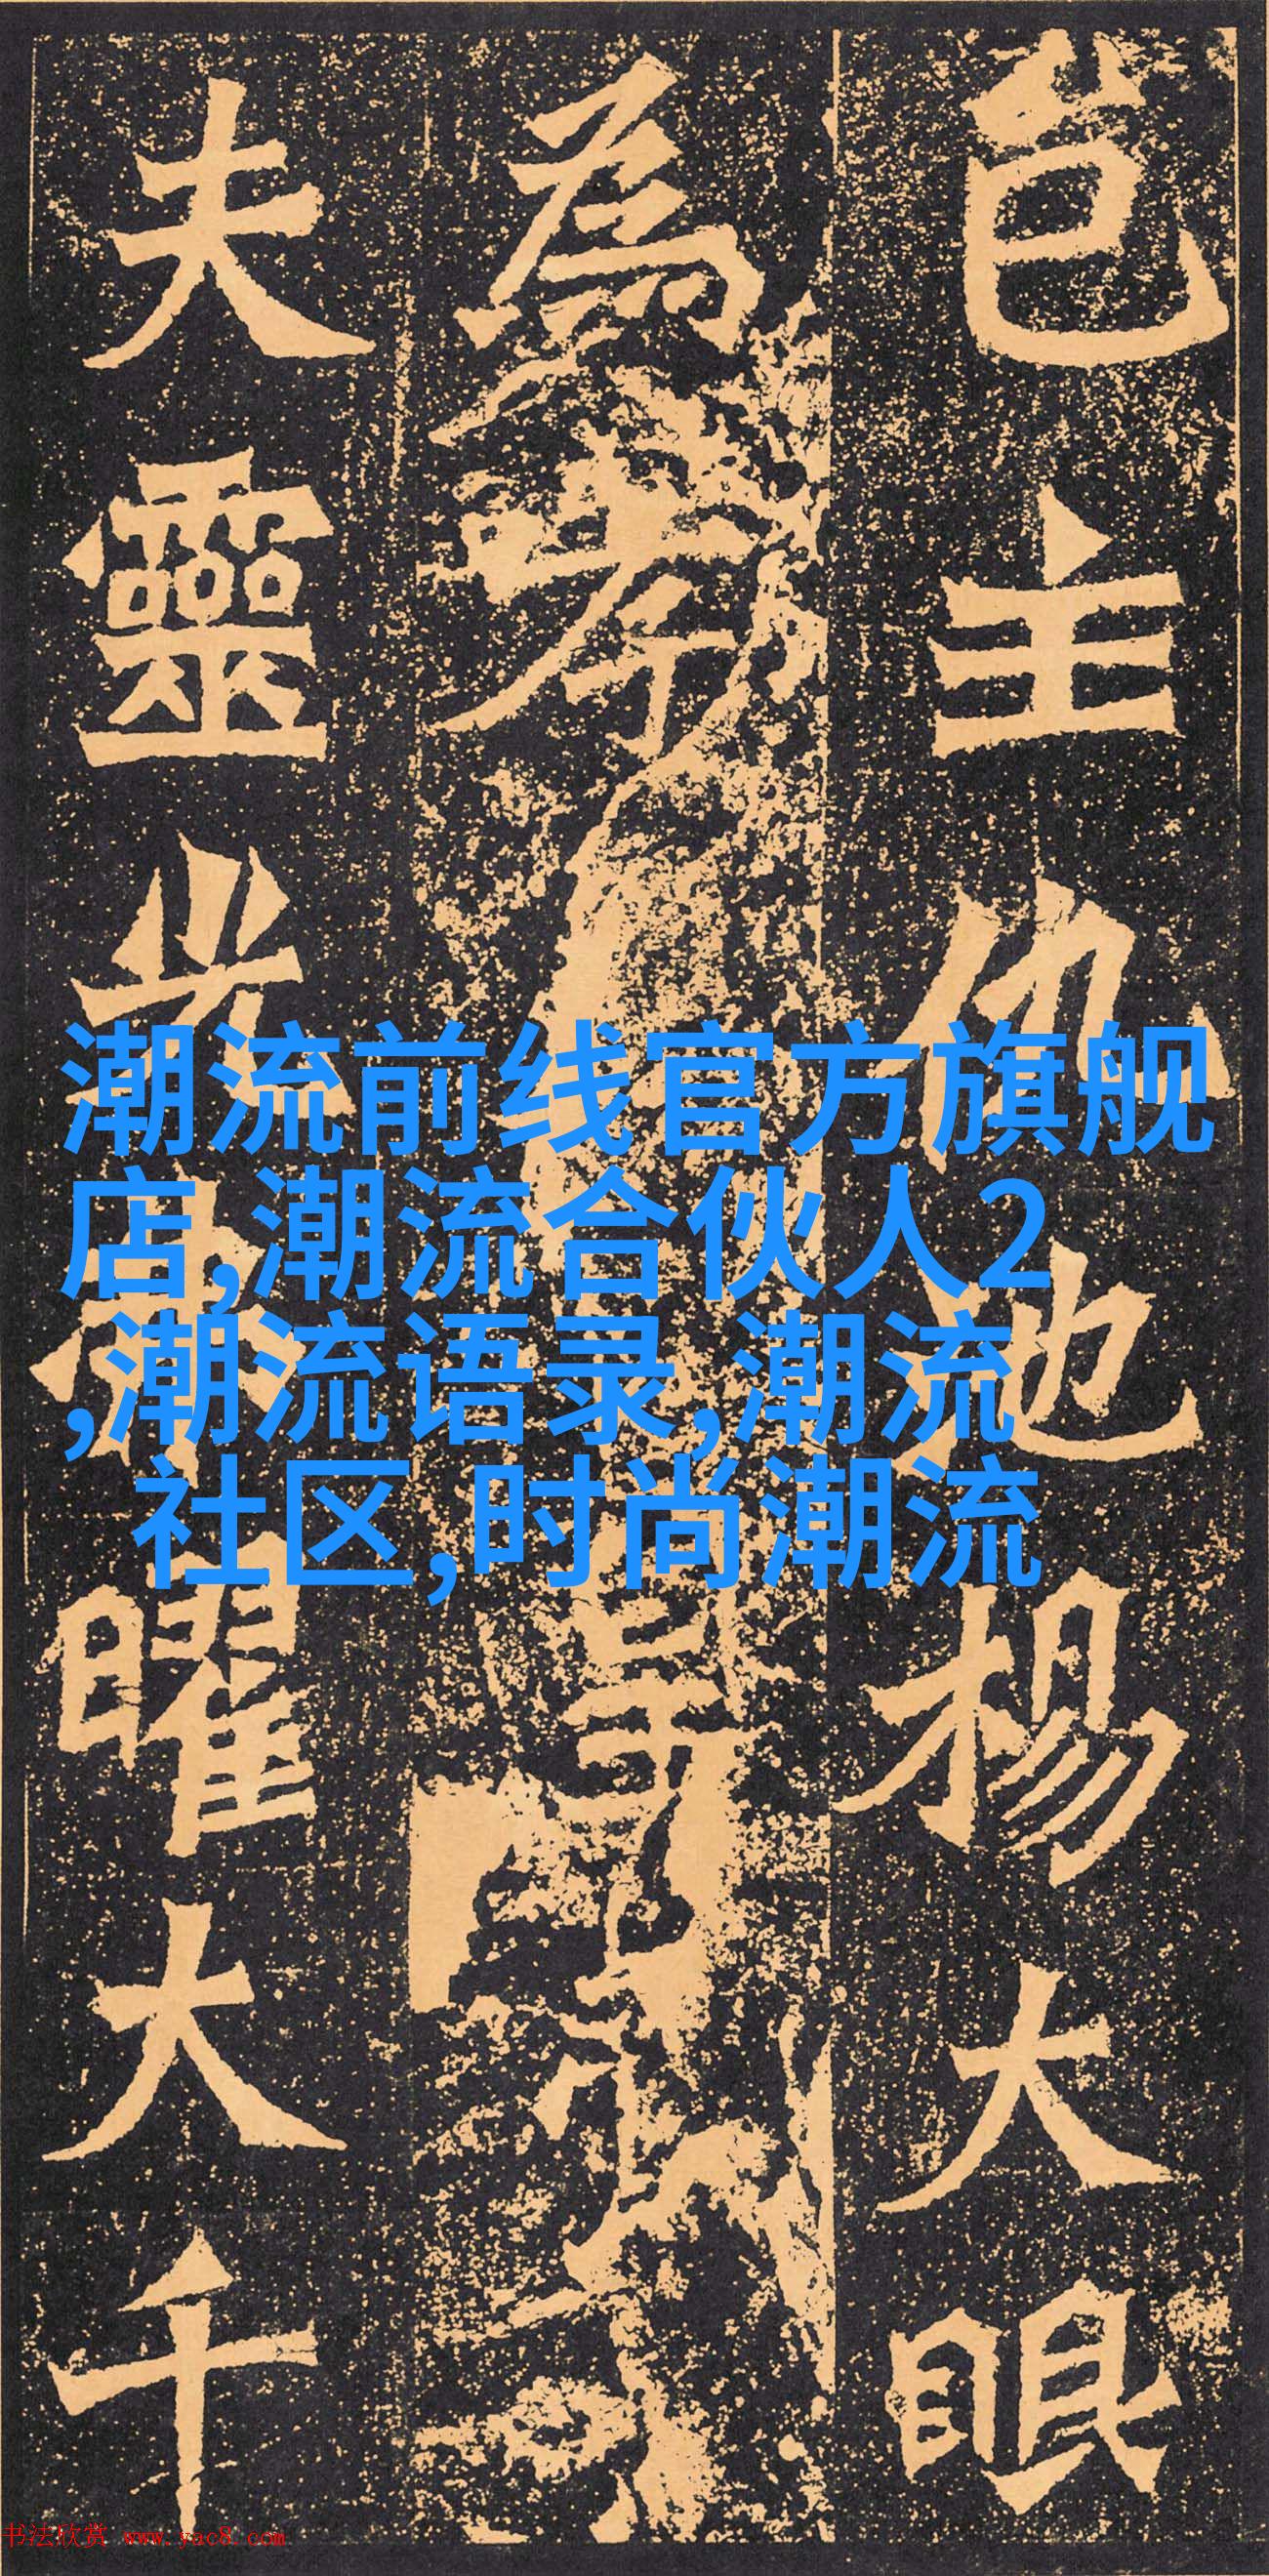 邑主仇池楊大眼
為孝
夫靈光曜大千
潮流前线官方旗舰
店,潮流合伙人2
,潮流语录,潮流
社区,时尚潮流
书法欣赏 www.yac8.com